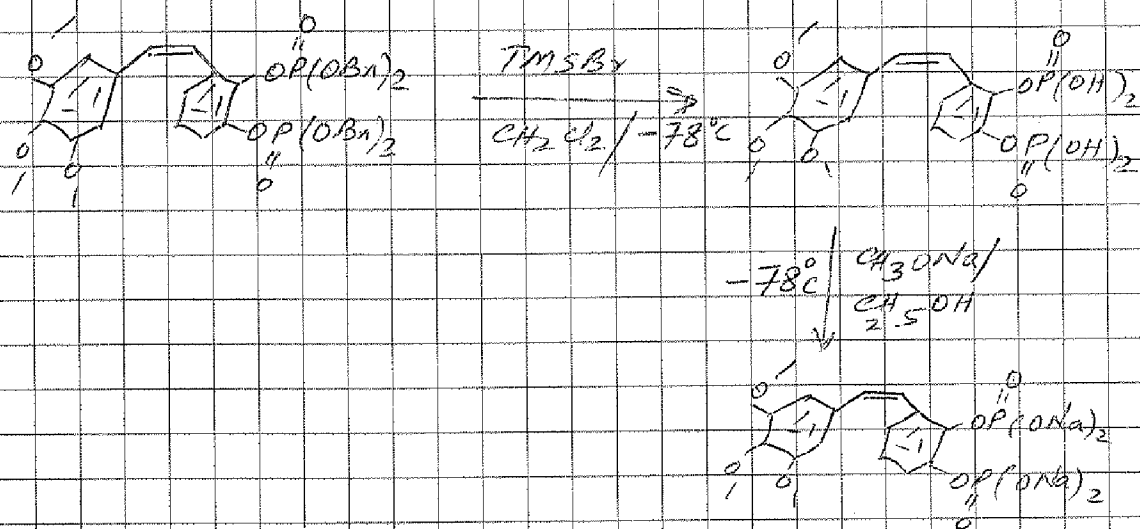 O
OP(OBn)2
OP(OBn)2
O
O
O
O
TMSBr
CH2Cl2/-78°C
O
OP(OH)2
OP(OH)2
O
O
O
O
-78°C
CH3ONa/
C2H5OH
O
OP(ONa)2
OP(ONa)2
O
O
O
O